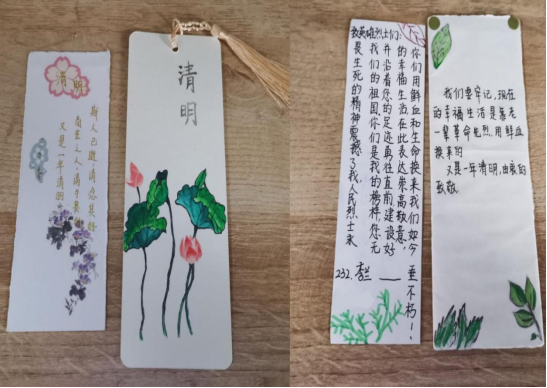 清明
斯人已逝，请念其好
尚在之人，请予
又是一年清明
清明
致英雄烈士们：
你们用鲜血和生命换来我们如今
的幸福生活在此表达崇高敬意，
并沿着您的足迹勇往直前，建设好
我们的祖国你们是我的榜样，您无
畏生死的精神震撼了我，人民烈士永
垂不朽！
232. 李兰
我们要牢记，现在
的幸福生活是靠老
一辈革命先烈，用鲜血
换来的
又是一年清明，由衷的
致敬